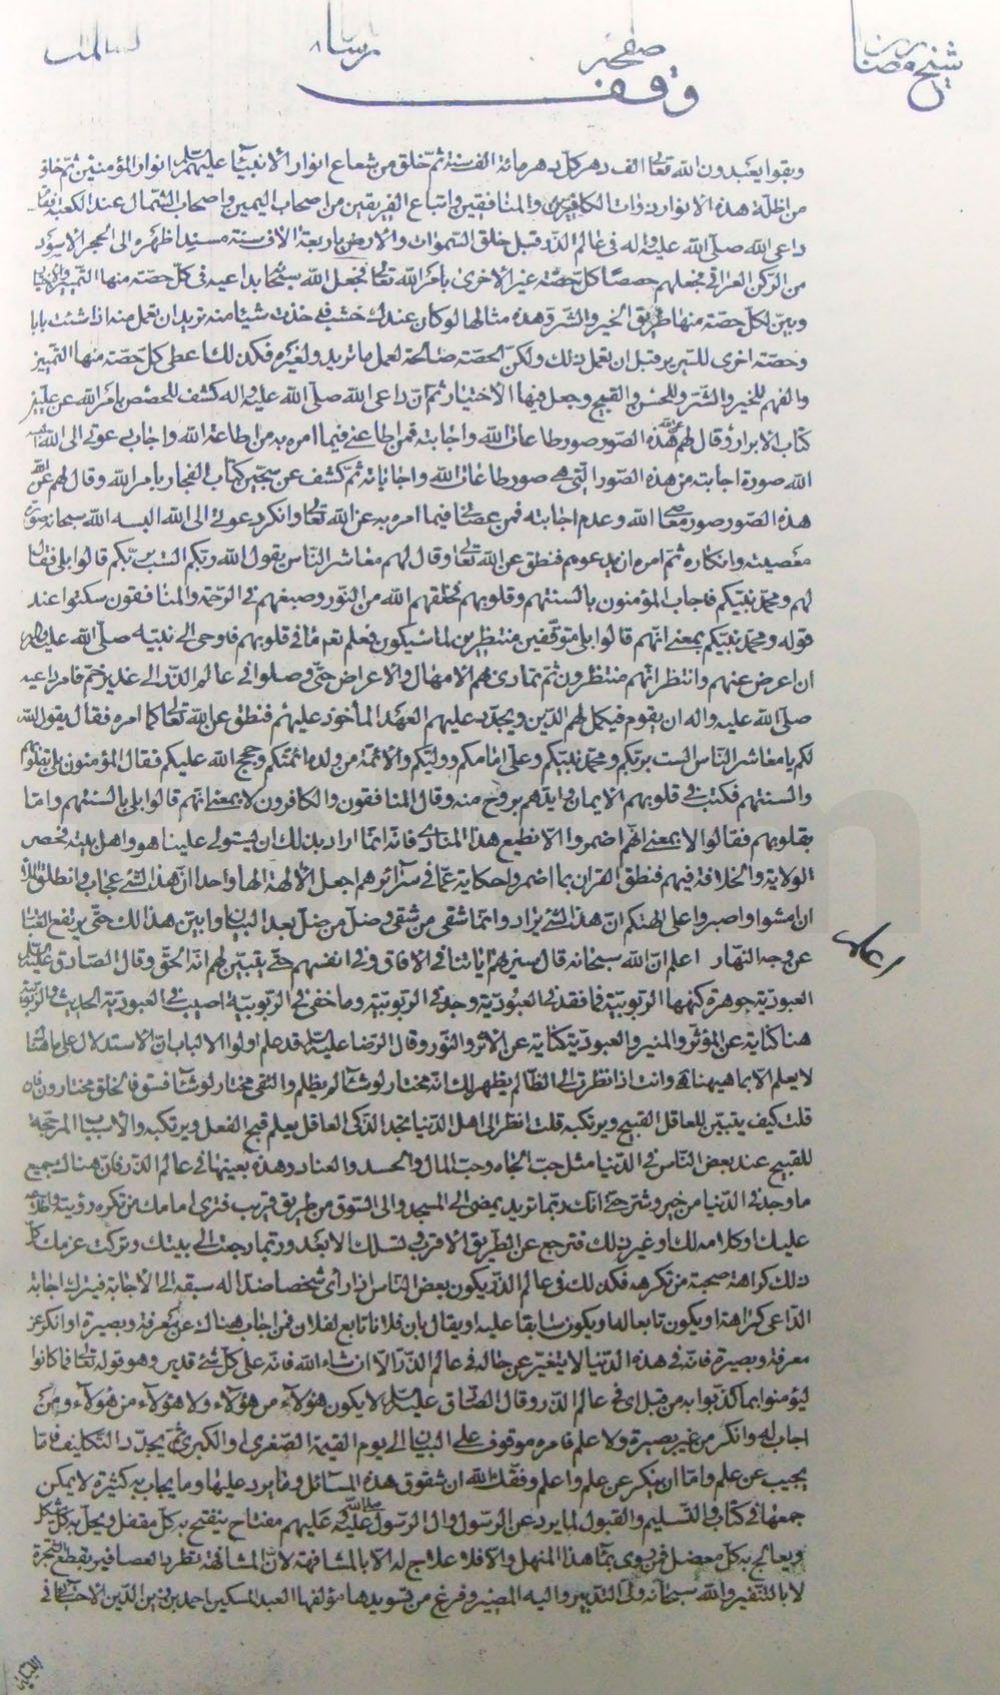 شيخ
رسا
صغير
وقف
وبقوا يعبدون الله تعالى الف دهر كل دهر مائة الف سنة ثم خلق من شعاع انوار الانبيآء عليهم السلم انوار المؤمنين ثم خلق
من اظلة هذه الانوار ذوات الكافرين والمنافقين واتباع الفريقين من اصحاب اليمين واصحاب الشمال عند الكعبة
داعى الله صلى الله عليه واله فى عالم الذر قبل خلق السموات والارض باربعة الاف سنة مسندا ظهره الى الحجر الاسود
من الركن العراقى فجعلهم حصصا كل حصة غير الاخرى بامر الله تعالى فجعل الله سبحانه بداعيه فى كل حصة منها التميز
وبين لكل حصة منها طريق الخير والشر وهذه مثالها لو كان عندك خشب فاخذت شيئا منه تريد ان تعمل منه اذا شئت بابا
وحصة اخرى للسرير قبل ان تعمل ذلك ولكن الحصة صالحة لعمل ما تريد ولغيره فكذلك اعطى كل حصة منها التمييز
والفهم للخير والشر وللحسن والقبيح وجعل فيها الاختيار ثم ان داعى الله صلى الله عليه واله كشف للحصص بامر الله عن عليين
كتاب الابرار وقال لهم هذه الصور صور طاعات الله واجابته فمن اطاعنى فيما امره به من اطاعة الله واجاب دعوتى الى الله البسه
الله صورة اجابته من هذه الصور التى هى صور طاعات الله واجاباته ثم كشف عن سجين كتاب الفجار بامر الله وقال لهم عن الله
هذه الصور صور معاصى الله وعدم اجابته فمن عصانى فيما امره به عن الله تعالى وانكر دعوتى الى الله البسه الله سبحانه صورة
معصيته وانكاره ثم امره ان يدعوهم فنطق عن الله تعالى وقال لهم معاشر الناس يقول الله ربكم الست بربكم قالوا بلى فقال
لهم ومحمد نبيكم فاجاب المؤمنون بالسنتهم وقلوبهم فخلقهم الله من النور وصبغهم فى الرحمة والمنافقون سكتوا عند
قوله ومحمد نبيكم بمعنى انهم قالوا بلى متوقفين منتظرين لما سيكون فعلم تعالى ما فى قلوبهم فاوحى الى نبيه صلى الله عليه واله
ان اعرض عنهم وانتظر انهم منتظرون ثم تمادى بهم الامهال والاعراض حتى وصلوا فى عالم الذر الى غدير خم فامر داعيه
صلى الله عليه واله ان يقوم فيكمل لهم الدين ويجدد عليهم العهد المأخوذ عليهم فنطق عن الله تعالى كما امره فقال يقول الله
لكم يا معاشر الناس الست بربكم ومحمد نبيكم وعلى امامكم ووليكم والائمة من ولده ائمتكم وحجج الله عليكم فقال المؤمنون بلى بقلوبهم
والسنتهم فكتب فى قلوبهم الايمان وايدهم بروح منه وقال المنافقون والكافرون لا بمعنى انهم قالوا بلى بالسنتهم واما
بقلوبهم فقالوا لا بمعنى انهم اضمروا الا نطيع هذا المنادى فانه انما اراد بذلك ان يستولى علينا هو واهل بيته فحصر
الولاية والخلافة فيهم فنطق القران بما اضمروا حكاية عما فى سرآئرهم اجعل الالهة الها واحدا ان هذا لشئ عجاب وانطلق الملأ
ان امشوا واصبروا على الهتكم ان هذا لشئ يراد وانما شقى من شقى وضل من ضل بعد البيان وابين هذا لك حتى يرتفع الغبار
عن وجه النهار اعلم ان الله سبحانه قال سنريهم اياتنا فى الافاق وفى انفسهم حتى يتبين لهم انه الحق وقال الصادق عليه السلم
العبودية جوهرة كنهها الربوبية فما فقد فى العبودية وجد فى الربوبية وما خفى فى الربوبية اصيب فى العبودية الحديث والربوبية
هنا كناية عن المؤثر والمنير والعبودية كناية عن الاثر والنور وقال الرضا عليه السلم قد علم اولوا الالباب ان الاستدلال على ما هناك
لا يعلم الا بما هيهنا وانت اذا نظرت الى الظالم يظهر لك انه مختار لو شآء لم يظلم والتقى مختار لو شآء فسق فالخلق مختارون فان
قلت كيف يتبين للعاقل القبيح ويرتكبه قلت انظر الى اهل الدنيا تجد الذكى العاقل يعلم قبح الفعل ويرتكبه والاسباب المرجحة
للقبيح عند بعض الناس فى الدنيا مثل حب الجاه وحب المال والحسد والعناد وهذه بعينها فى عالم الذر فان هناك جميع
ما وجد فى الدنيا من خير وشر حتى انك ربما تريد يمضى الى المسجد والى السوق من طريق قريب فترى امامك من تكره رؤيته
عليك وكلامه لك وغير ذلك فترجع عن الطريق الاقرب وتسلك الابعد وربما رجعت الى بيتك وتركت عزمك كل
ذلك كراهة صحبة من تكرهه فكذلك فى عالم الذر يكون بعض الناس اذا رأى شخصا ضدا له سبقه الى الاجابة فيترك اجابة
الداعى كراهة ان يكون تابعا له او يكون سابقا عليه او يقال بان فلانا تابع لفلان فمن اجاب هناك عن معرفة وبصيرة او انكر عن
معرفة وبصيرة فانه فى هذه الدنيا لا يتغير عن حاله فى عالم الذر الا ان شاء الله فانه على كل شئ قدير وهو قوله تعالى فما كانوا
ليؤمنوا بما كذبوا به من قبل اى فى عالم الذر وقال الصادق عليه السلم لا يكون هؤلآء من هؤلآء ولا هؤلآء من هؤلآء ومن
اجاب له وانكر من غير بصيرة ولا علم فامره موقوف على البيان الى يوم القيمة الصغرى او الكبرى ثم يجدد التكليف فاما
يجيب عن علم واما ان ينكر عن علم واعلم وفقك الله ان شقوق هذه المسائل وما يرد عليها وما يجاب به كثيرة لا يمكن
جمعها فى كتاب والتسليم والقبول لما يرد عن الرسول وال الرسول صلى الله عليه وعليهم مفتاح ينفتح به كل مقفل ويحل به كل مشكل
ويعالج به كل معضل فمن روى بماء هذا المنهل والا فلا علاج له الا بالمشافهة لان المشافهة تطرد العصافير بقطع الشجرة
لا بالتنفير والله سبحانه ولى التدبير واليه المصير وفرغ من تسويدها مؤلفها العبد المسكين احمد بن زين الدين الاحسائى فى